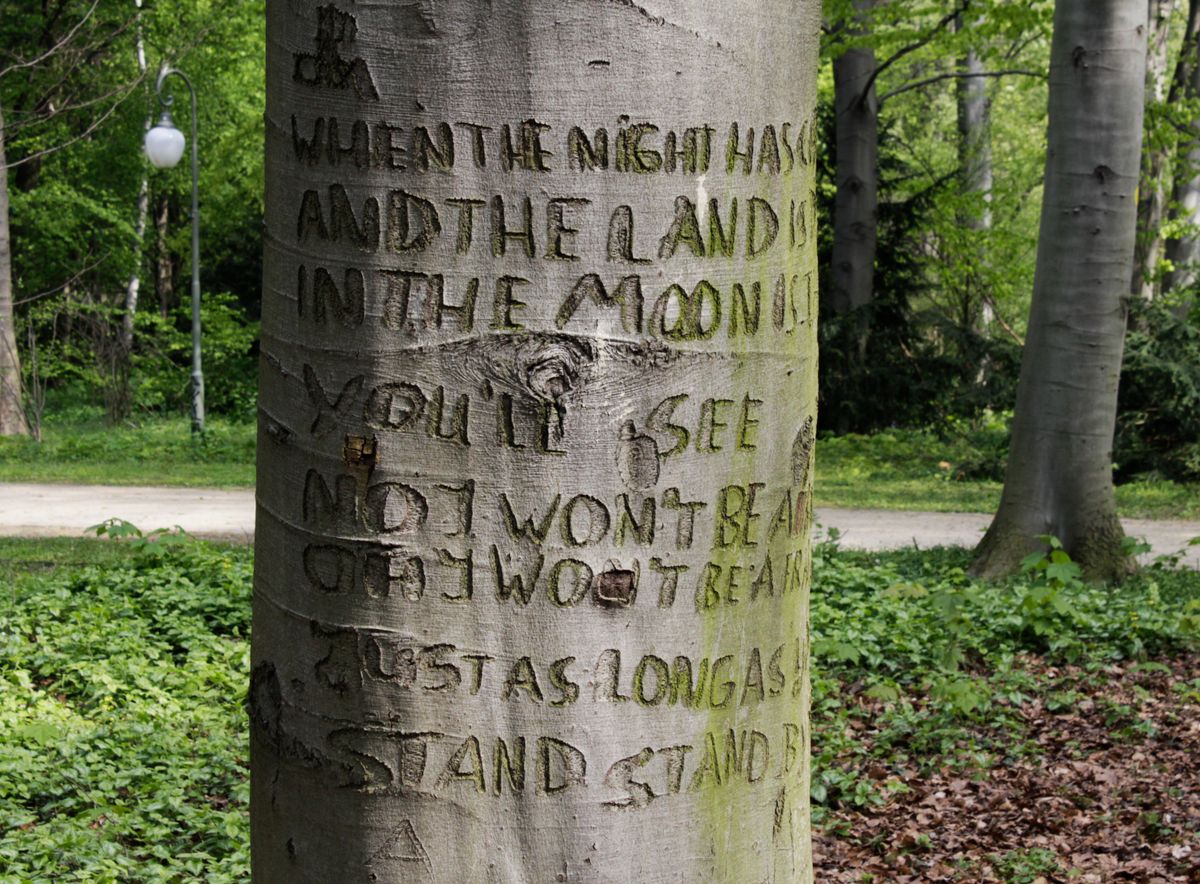 WHEN THE NIGHT HAS
AND THE LAND IS
IN THE MOON IS
YOU'LL SEE
NO I WON'T BE A
OH I WON'T BE A
JUST AS LONG AS
STAND STAND B